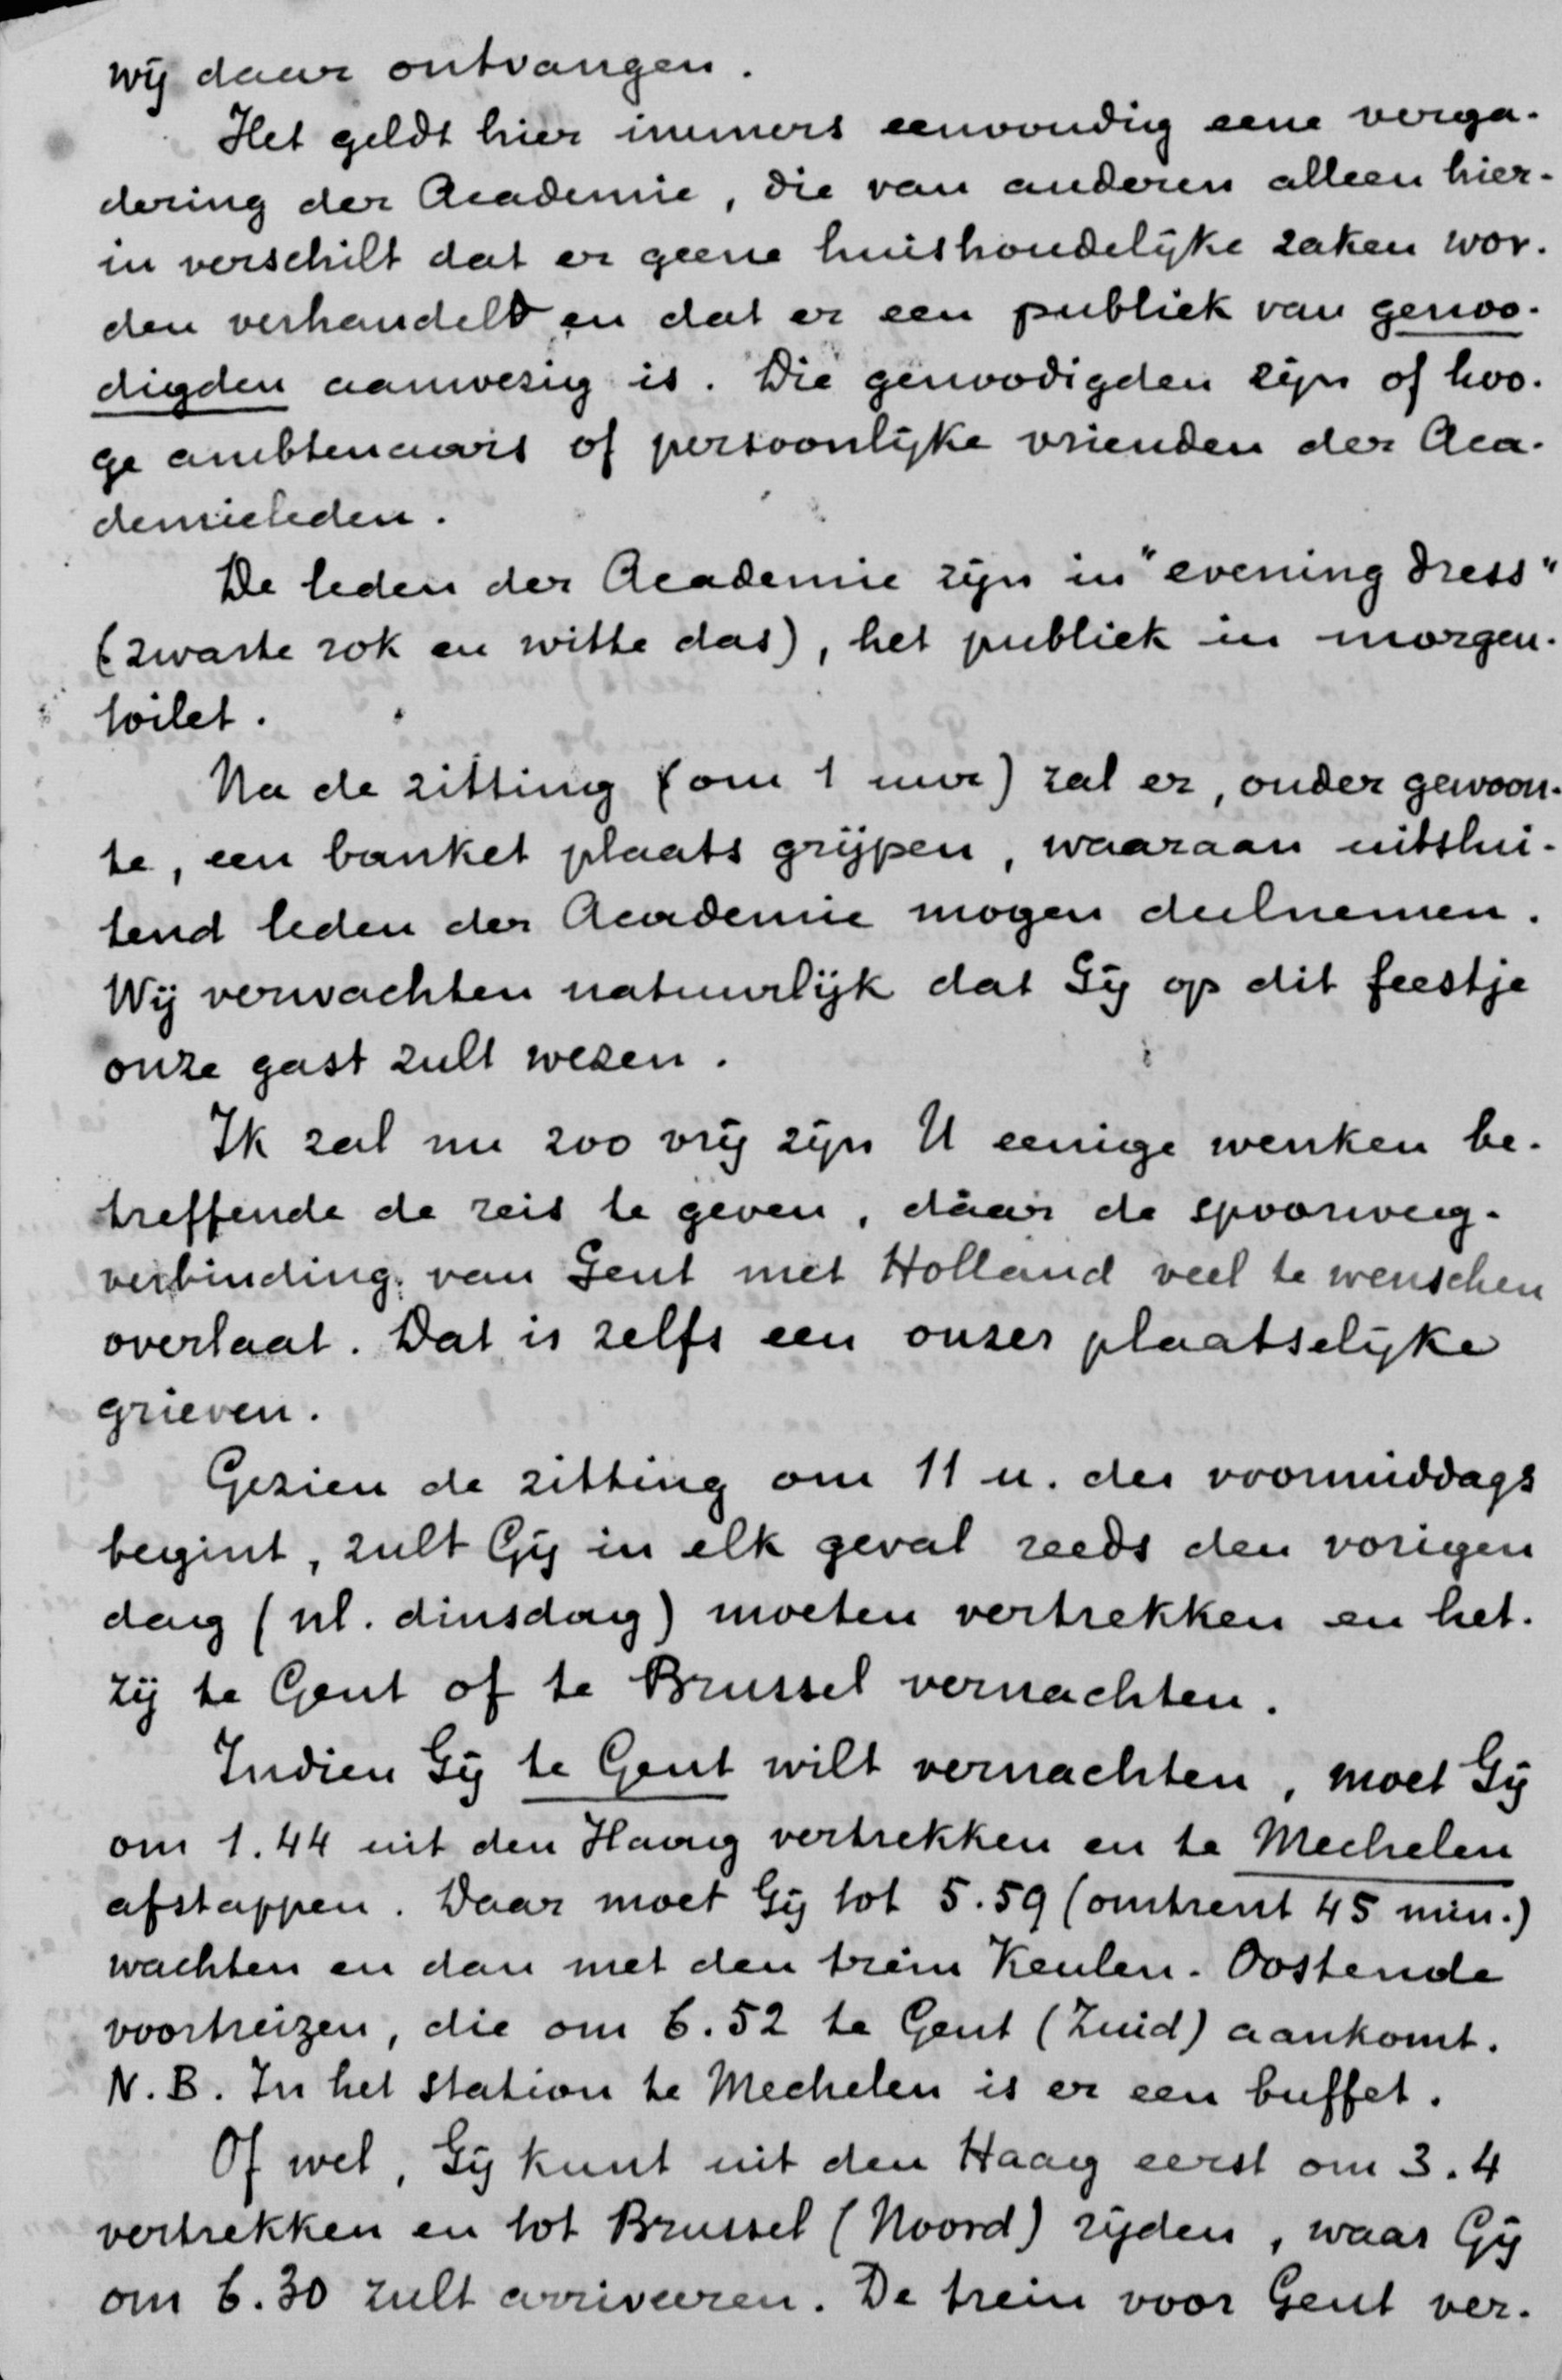 wij daar ontvangen.
Het geldt hier immers eenvoudig eene verga-
dering der Academie, die van anderen alleen hier-
in verschilt dat er geene huishoudelijke zaken wor-
den verhandeld en dat er een publiek van genoo-
digden aanwezig is. Die genoodigden zijn of hoo-
ge ambtenaars of persoonlijke vrienden der Aca-
demieleden.
De leden der Academie zijn in "evening dress"
(zwarte rok en witte das), het publiek in morgen-
toilet.
Na de zitting (om 1 uur) zal er, ouder gewoon-
te, een banket plaats grijpen, waaraan uitslui-
tend leden der Academie mogen deelnemen.
Wij verwachten natuurlijk dat Gij op dit feestje
onze gast zult wezen.
Ik zal nu zoo vrij zijn U eenige wenken be-
treffende de reis te geven, daar de spoorweg-
verbinding van Gent met Holland veel te wenschen
overlaat. Dat is zelfs een onzer plaatselijke
grieven.
Gezien de zitting om 11 u. des voormiddags
begint, zult Gij in elk geval reeds den vorigen
dag (nl. dinsdag) moeten vertrekken en het-
zij te Gent of te Brussel vernachten.
Indien Gij te Gent wilt vernachten, moet Gij
om 1.44 uit den Haag vertrekken en te Mechelen
afstappen. Daar moet Gij tot 5.59 (omtrent 45 min.)
wachten en dan met den trein Keulen-Oostende
voortreizen, die om 6.52 te Gent (Zuid) aankomt.
N.B. In het station te Mechelen is er een buffet.
Of wel, Gij kunt uit den Haag eerst om 3.4
vertrekken en tot Brussel (Noord) rijden, waar Gij
om 6.30 zult arriveeren. De trein voor Gent ver-